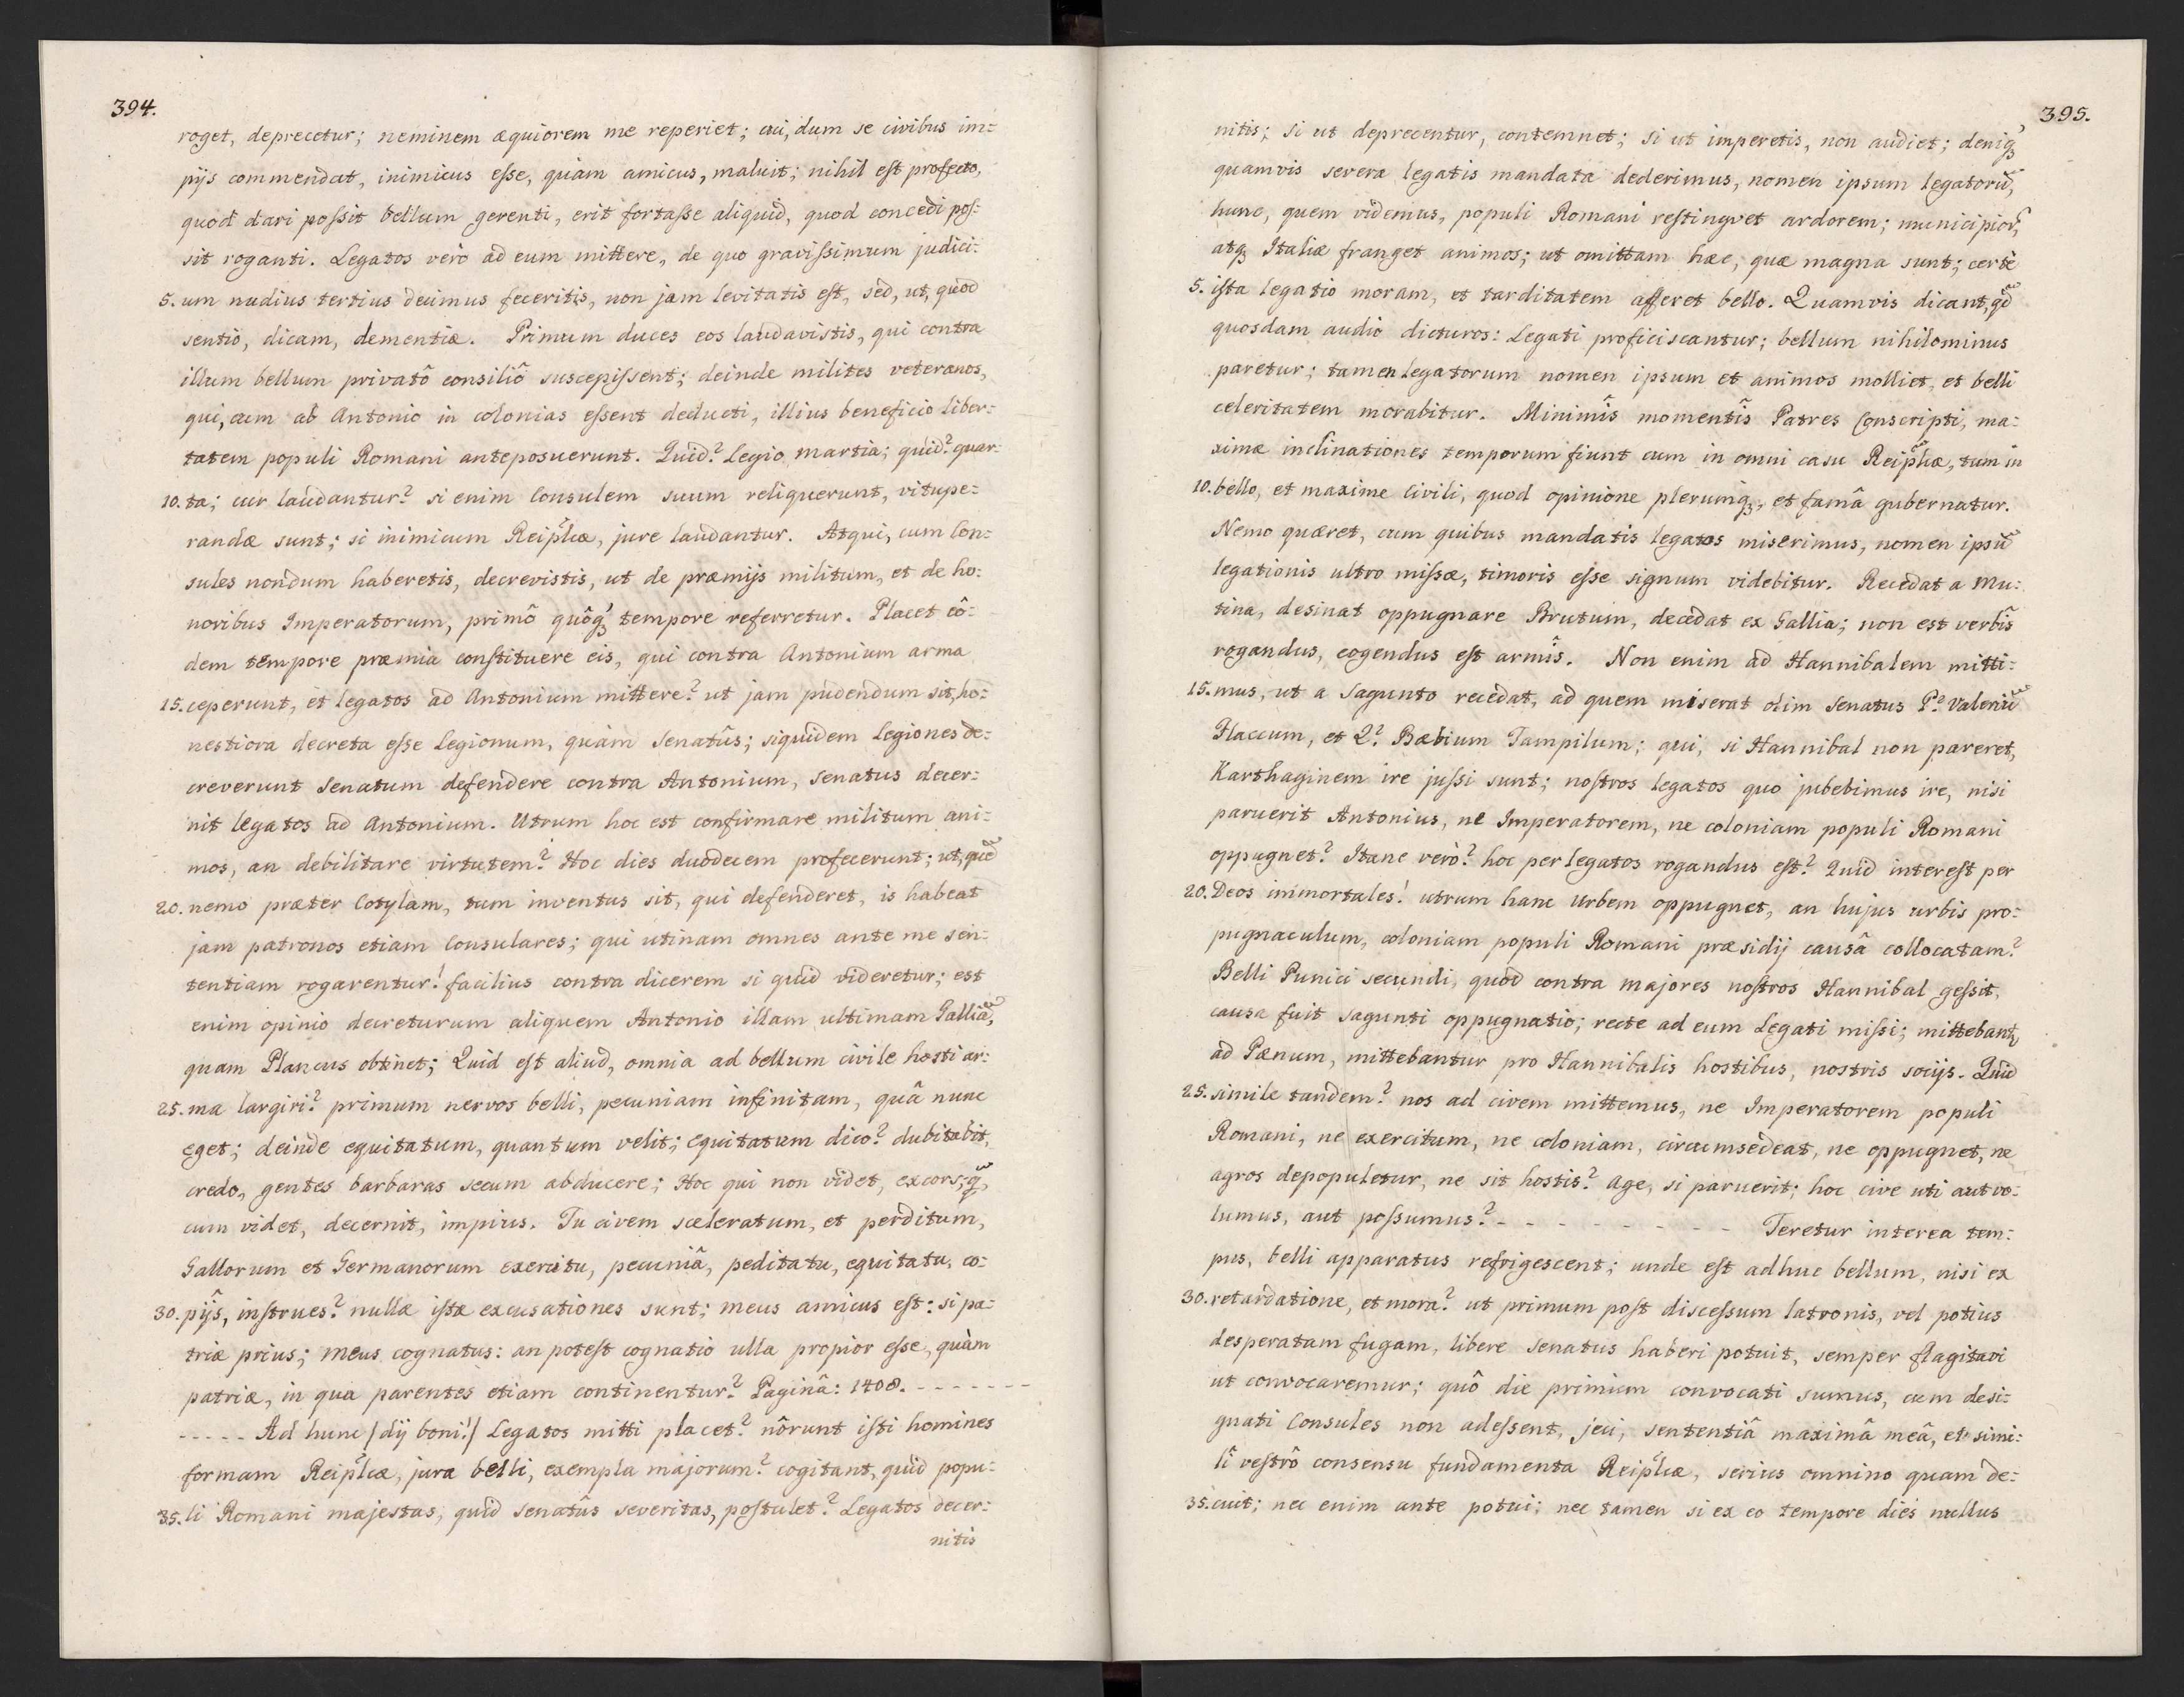 394.
roget, deprecetur; neminem æquiorem me reperiet; cui, dum se civibus im=
pijs commendat, inimicus esse, quàm amicus, maluit; nihil est profecto,
quod dari possit bellum gerenti, erit fortasse aliquid, quod concedi pos=
sit roganti. Legatos verò ad eum mittere, de quo gravissimum judici=
5. um nudius tertius decimus feceritis, non jam levitatis est, sed, ut, quod
sentio, dicam, dementiæ. Primum duces eos laudavistis, qui contra
illum bellum privatô consiliô suscepissent; deinde milites veteranos,
qui, cum ab Antonio in colonias essent deducti, illius beneficio liber=
tatem populi Romani anteposuerunt. Quid? Legio martia; quid? quar=
10. ta; cur laudantur? si enim Consulem suum reliquerunt, vitupe=
randæ sunt; si inimicum Reiplicæ, jure laudantur. Atqui, cum Con=
sules nondum haberetis, decrevistis, ut de præmijs militum, et de ho=
noribus Imperatorum, primô quôqꝫ tempore referretur. Placet eô=
dem tempore præmia constituere eis, qui contra Antonium arma
15. ceperunt, et legatos ad Antonium mittere? ut jam pudendum sit, ho=
nestiora decreta esse legionum, quàm Senatûs; siquidem Legiones de=
creverunt Senatum defendere contra Antonium, Senatus decer=
nit legatos ad Antonium. Utrum hoc est confirmare militum ani=
mos, an debilitare virtutem? Hoc dies duodecem profecerunt; ut, què
20. nemo præter Cotylam, tum inventus sit, qui defenderet, is habeat
jam patronos etiam Consulares; qui utinam omnes ante me sen=
tentiam rogarentur! facilius contra dicerem si quid videretur; est
enim opinio decreturum aliquem Antonio illam ultimam Galliã,
quam Plancus obtinet; Quid est aliud, omnia ad bellum civile hosti ar=
25. ma largiri? primum nervos belli, pecuniam infinitam, quâ nunc
eget; deinde equitatum, quantum velit; equitatum dico? dubitabit,
credo, gentes barbaras secum abducere; Hoc qui non videt, excors; q̃,
cum videt, decernit, impius. Tu civem sceleratum, et perditum,
Gallorum et Germanorum exercitu, pecuniâ, peditatu, equitatu, co=
30. pijs, instrues? nullæ istæ excusationes sunt; meus amicus est: si pa=
triæ prius; meus cognatus: an potest cognatio ulla propior esse, quàm
patriæ, in qua parentes etiam continentur? Paginâ: 1408. - - - - - - -
- - - - - Ad hunc /dij boni!/ Legatos mitti placet? nôrunt isti homines
formam Reiplicæ, jura belli, exempla majorum? cogitant, quid popu=
35. li Romani majestas, quid senatûs severitas, postulet? Legatos decer=
nitis
395.
nitis; si ut deprecentur, contemnet; si ut imperetis, non audiet; deniqꝫ
quamvis severa legatis mandata dederimus, nomen ipsum legatorũ,
hunc, quem videmus, populi Romani restingvet ardorem; municipiorũ,
atqꝫ Italiæ franget animos; ut omittam hæc, quæ magna sunt; certè
5. ista legatio moram, et tarditatem afferet bello. Quamvis dicant, qd̃
quosdam audio dicturos: Legati proficiscantur; bellum nihilominus
paretur; tamen legatorum nomen ipsum et animos molliet, et belli
celeritatem morabitur. Minimîs momentîs Patres Conscripti, ma=
ximæ inclinationes temporum fiunt cum in omni casu Reiplicæ, tum in
10. bello, et maxime Civili, quod opinione plerumqꝫ, et famâ gubernatur.
Nemo quæret, cum quibus mandatis legatos miserimus, nomen ipsũ
legationis ultro missæ, timoris esse signum videbitur. Recedat a Mu=
tina, desinat oppugnare Brutum, decedat ex Gallia; non est verbîs
rogandus, cogendus est armîs. Non enim ad Hannibalem mitti=
15. mus, ut a Sagunto recedat, ad quem miserat olim Senatus P? Valeriũ
Flaccum, et Q? Bæbium Tampilum; qui, si Hannibal non pareret,
Karthaginem ire jussi sunt; nostros legatos quo jubebimus ire, nisi
paruerit Antonius, ne Imperatorem, ne coloniam populi Romani
oppugnet? Itane verò? hoc per legatos rogandus est? Quid interest per
20. Deos immortales! utrum hanc Urbem oppugnet, an hujus urbis pro=
pugnaculum, coloniam populi Romani præsidij causâ collocatam?
Belli Punici secundi, quod contra majores nostros Hannibal gessit,
causa fuit Sagunti oppugnatio; recte ad eum Legati missi; mittebant,
ad Pænum, mittebantur pro Hannibalis hostibus, nostris socijs. Quid
25. simile tandem? nos ad civem mittemus, ne Imperatorem populi
Romani, ne exercitum, ne coloniam, circumsedeat, ne oppugnet, ne
agros depopuletur, ne sit hostis? Age, si paruerit; hoc cive uti aut vo=
lumus, aut possumus? - - - - - - - - - - Teretur interea tem=
pus, belli apparatus refrigescent; unde est adhuc bellum, nisi ex
30. retardatione, et mora? ut primum post discessum latronis, vel potius
desperatam fugam, libere Senatus haberi potuit, semper flagitavi
ut convocaremur; quô die primum convocati sumus, cum desi=
gnati Consules non adessent, jeci, sententiâ maximâ meâ, et simi=
lî vestrô consensu fundamenta Reiplicæ, serius omnino quam de=
35. cuit; nec enim ante potui; nec tamen si ex eo tempore dies nullus